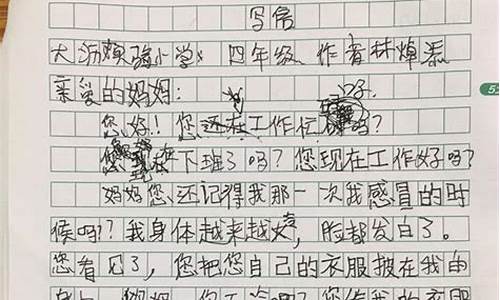 写信
大沥实验小学 四年级 作者林焯悉
亲爱的妈妈:
您好!您还在工作忙吗?
您现在下班了吗?您现在工作好吗?
妈妈您还记得我那一次我感冒的时
候吗?我身体越来越,脸都发白了。
您看见了,您把您自己的衣服披在我的
身上 您 吗?您 我的衣服